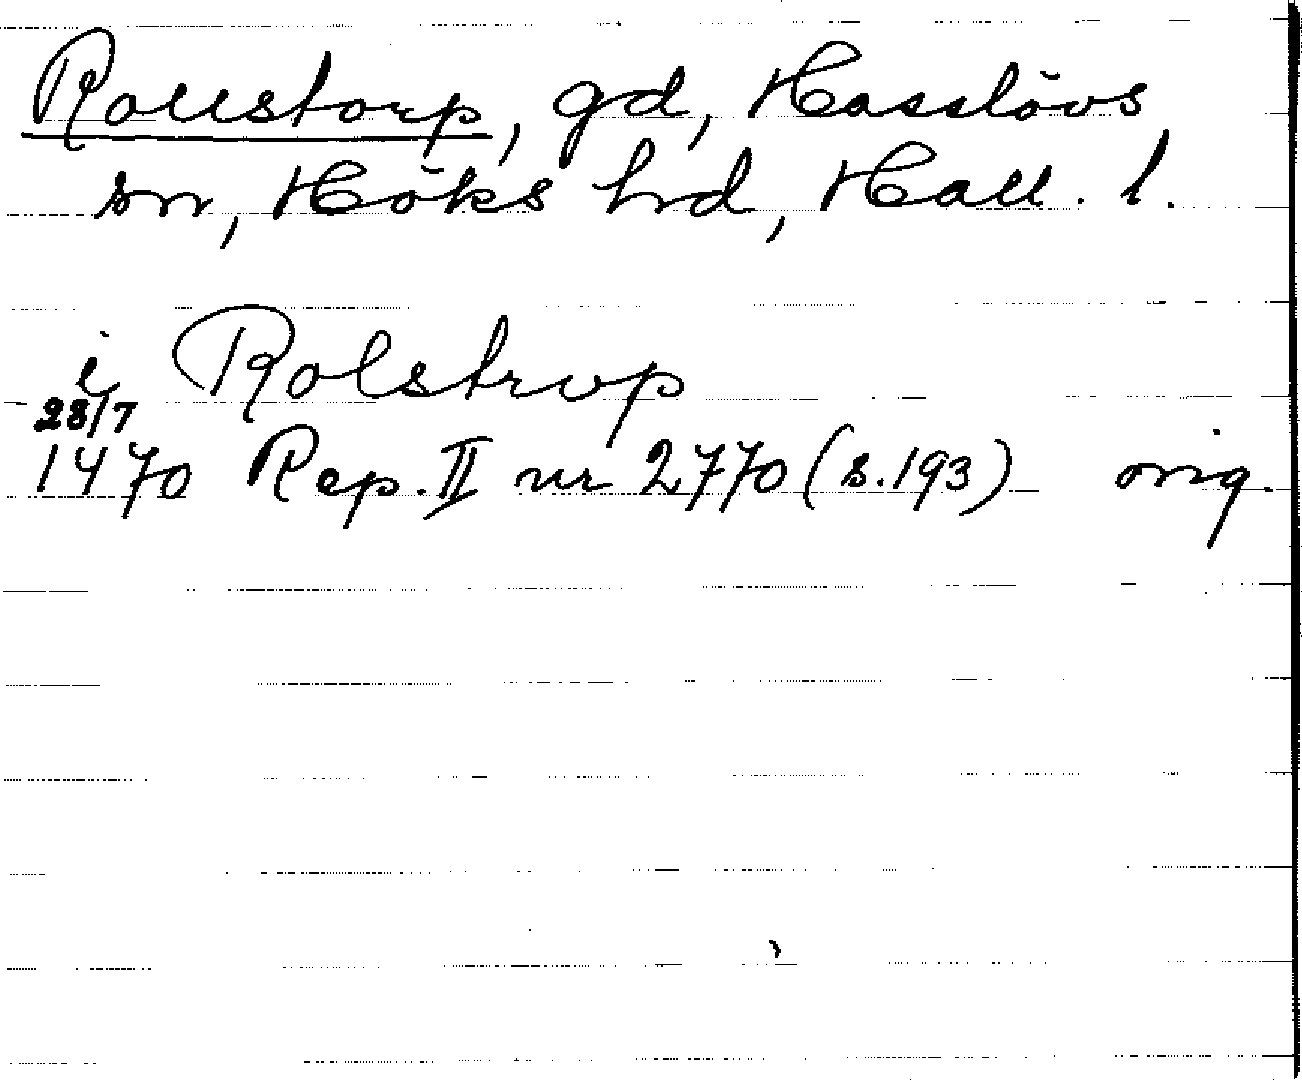 Rollstorp, gd, Hasslövs
sn, Höks hd, Hall. l.
i Rolstrup
28/7
1470 Rep. II nr 2770 (s. 193) orig.